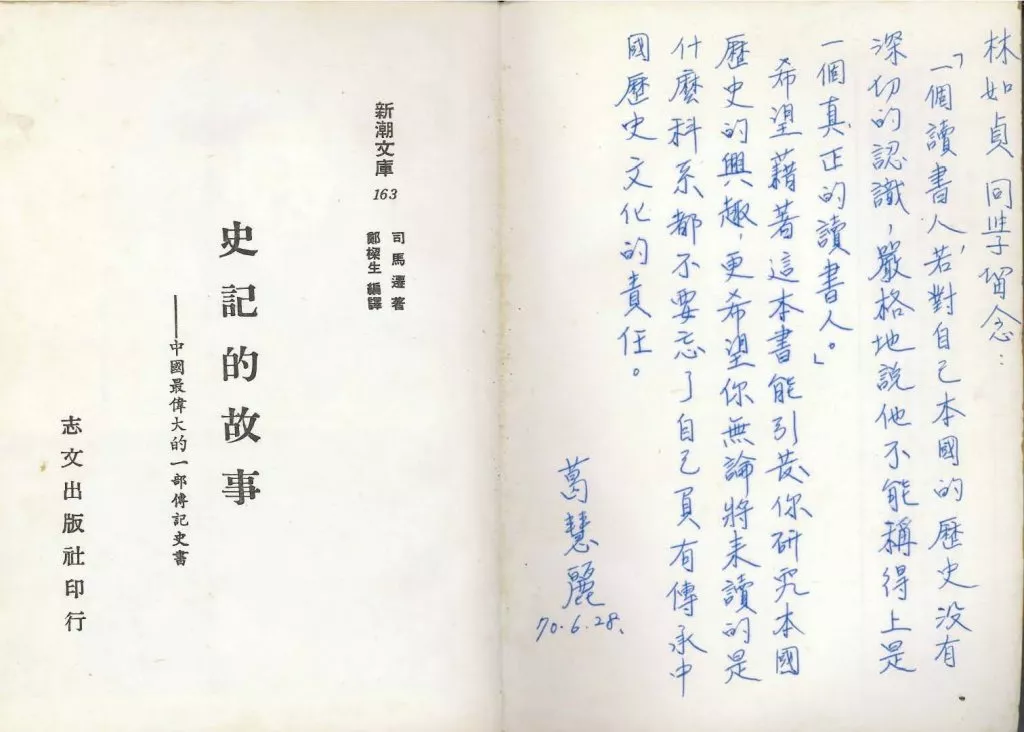 林如貞 同學留念：
「一個讀書人，若對自己本國的歷史没有
深切的認識，嚴格地說他不能稱得上是
一個真正的讀書人。」
希望藉著這本書能引發你研究本國
歷史的興趣，更希望你無論將來讀的是
什麼科系都不要忘了自己負有傳承中
國歷史文化的責任。
葛慧麗
70.6.28.
新潮文庫 163
司馬遷著
鄭樑生 編譯
史記的故事
——中國最偉大的一部傳記史書
志文出版社印行